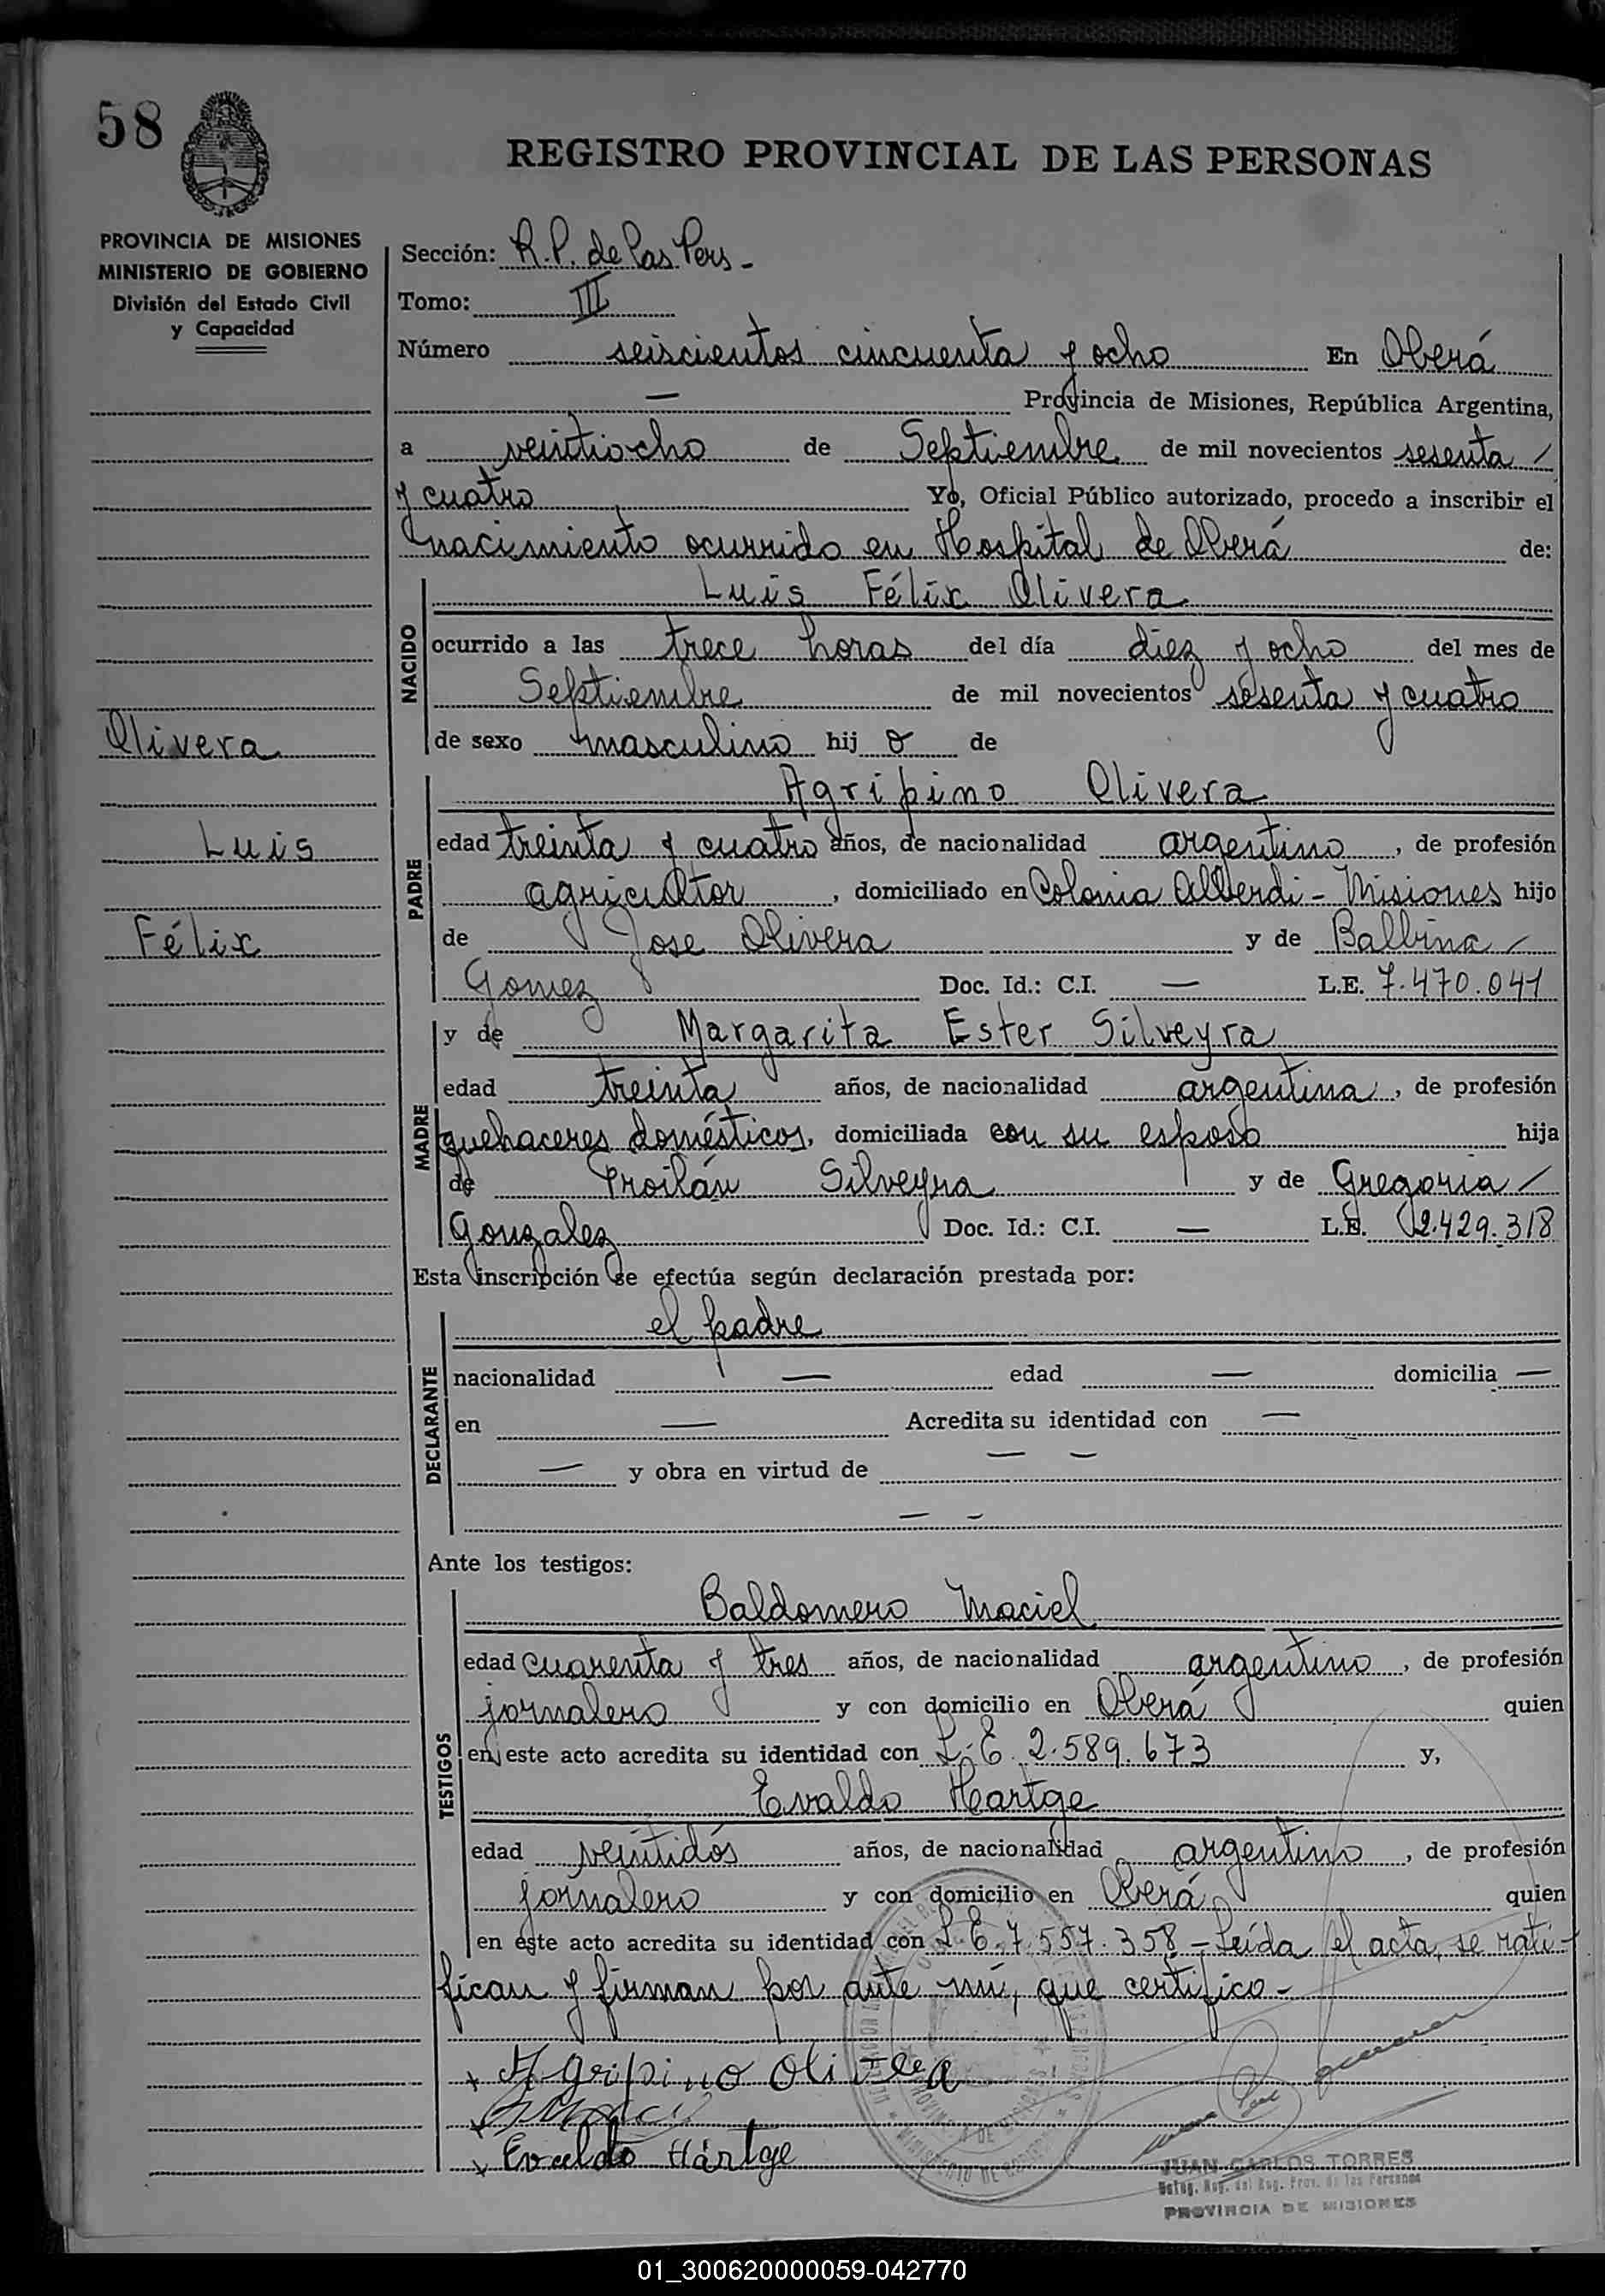 58
REGISTRO PROVINCIAL DE LAS PERSONAS
PROVINCIA DE MISIONES
MINISTERIO DE GOBIERNO
División del Estado Civil
y Capacidad
Sección: R.P. de las Pers -
Tomo: III
Número seiscientos cincuenta y ocho En Oberá
— Provincia de Misiones, República Argentina,
a veintiocho de Septiembre de mil novecientos sesenta /
y cuatro Yo, Oficial Público autorizado, procedo a inscribir el
nacimiento ocurrido en Hospital de Oberá de:
NACIDO
Luis Félix Olivera
ocurrido a las trece horas del día diez y ocho del mes de
Septiembre de mil novecientos sesenta y cuatro
Olivera
de sexo masculino hij o de
PADRE
Agripino Olivera
Luis
edad treinta y cuatro años, de nacionalidad argentino, de profesión
agricultor, domiciliado en Colonia Alberdi - Misiones hijo
Félix
de Jose Olivera y de Balbina /
Gomez Doc. Id.: C.I. — L.E. 7.470.041
MADRE
y de Margarita Ester Silveyra
edad treinta años, de nacionalidad argentina, de profesión
quehaceres domésticos, domiciliada con su esposo hija
de Froilán Silveyra y de Gregoria /
Gonzalez Doc. Id.: C.I. — L.E. 2.429.318
Esta inscripción se efectúa según declaración prestada por:
DECLARANTE
el padre
nacionalidad — edad — domicilia —
en — Acredita su identidad con —
— y obra en virtud de — —
— -
Ante los testigos:
TESTIGOS
Baldomero Maciel
edad cuarenta y tres años, de nacionalidad argentino, de profesión
jornalero y con domicilio en Oberá quien
en este acto acredita su identidad con L.E. 2.589.673 y,
Evaldo Hartge
edad veintidós años, de nacionalidad argentino, de profesión
jornalero y con domicilio en Oberá quien
en este acto acredita su identidad con L.E. 7.557.358 - Leída el acta, se rati-
fican y firman por ante mí, que certifico -
x Agripino Olivera
x Evaldo Hártge
JUAN CARLOS TORRES
PROVINCIA DE MISIONES
01_300620000059-042770